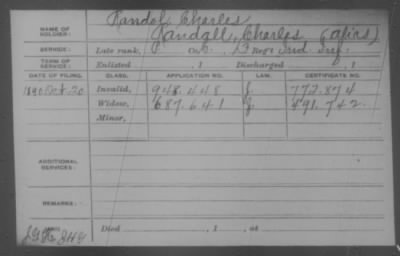 Randol, Charles
NAME OF SOLDIER: Randall, Charles (alias)
SERVICE: Late rank, P Co. 13 Reg't Ind. Inf.
TERM OF SERVICE: Enlisted , 1 Discharged , 1
DATE OF FILING. CLASS. APPLICATION NO. LAW. CERTIFICATE NO.
1890 Oct. 20 Invalid, 948.448 J. 772.874
Widow, 687.641 J. 491.742.
Minor,
ADDITIONAL SERVICES:
REMARKS:
Died , 1 , at